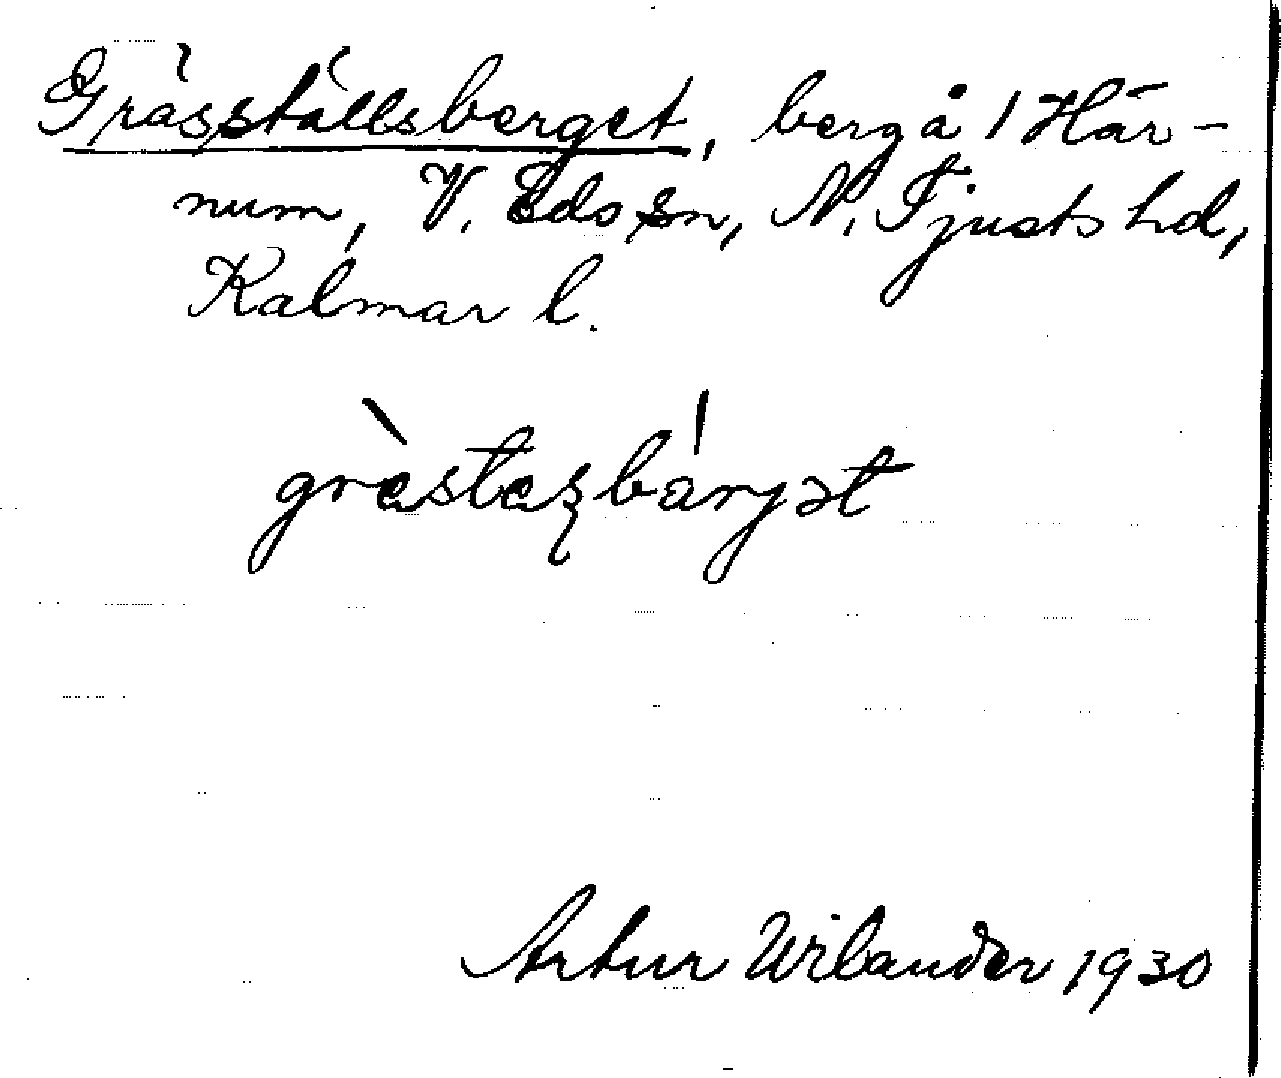 Gräsställsberget, berg å 1 Här-
num, V. Eds sn, N. Tjusts hd,
Kalmar l.
Artur Wilander 1930